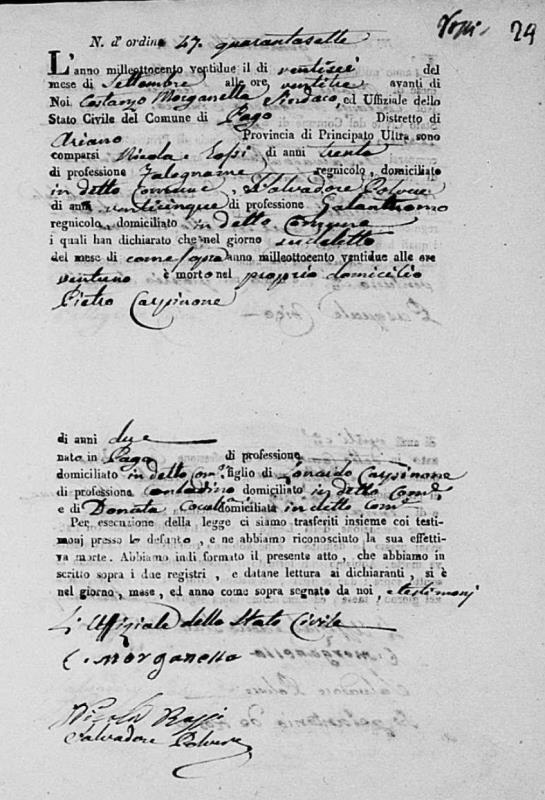 29
N. d' ordine 47. quarantasette
L'anno milleottocento ventidue il dì ventisei del
mese di Settembre alle ore ventitre avanti di
Noi Costanzo Morganella Sindaco, ed Uffiziale dello
Stato Civile del Comune di Pago Distretto di
Ariano Provincia di Principato Ultra sono
comparsi Nicola Rossi di anni trenta
di professione Falegname regnicolo, domiciliato
in detto Comune, Salvadore Polvere
di anni venticinque di professione Galantuomo
regnicolo, domiciliato in detto Comune
i quali han dichiarato che nel giorno sudetto
del mese di come sopra anno milleottocento ventidue alle ore
ventuno è morto nel proprio domicilio
Pietro Carpinone
di anni due
nato in Pago di professione
domiciliato in detto Com.e figlio di Lonardo Carpinone
di professione Contadino domiciliato in detto Com.e
e di Donata domiciliata in detto Com.e
Per esecuzione della legge ci siamo trasferiti insieme coi testi-
monj presso lo defunto, e ne abbiamo riconosciuto la sua effetti-
va morte. Abbiamo indi formato il presente atto, che abbiamo in-
scritto sopra i due registri, e datane lettura ai dichiaranti, si è
nel giorno, mese, ed anno come sopra segnato da noi e testimonj
L'Uffiziale dello Stato Civile
C. Morganella
Nicola Rossi
Salvadore Polvere